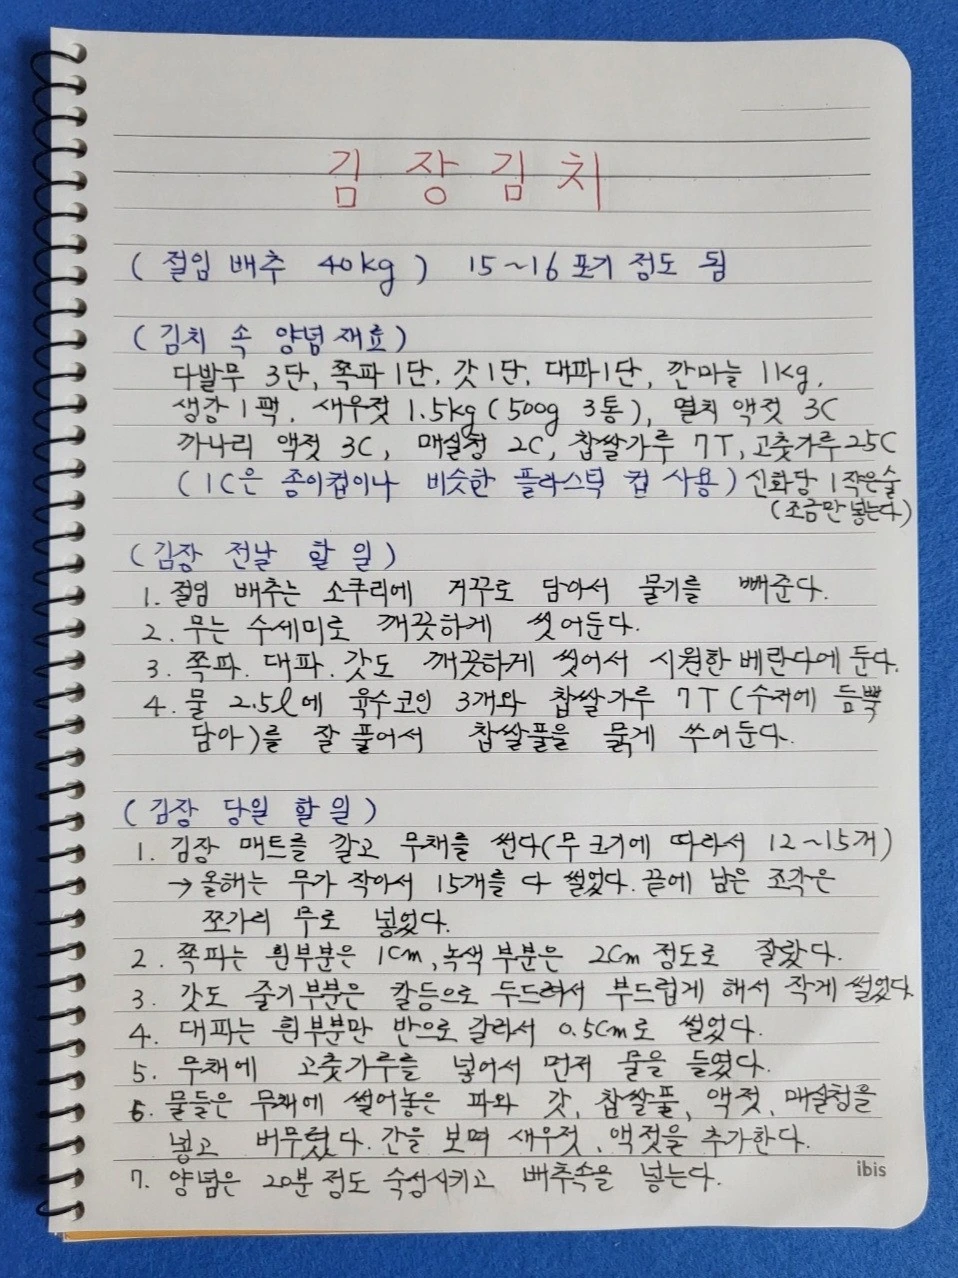 김장김치
(절임 배추 40kg) 15~16 포기 정도 됨
(김치 속 양념재료)
다발무 3단, 쪽파 1단, 갓 1단, 대파 1단, 깐마늘 1kg,
생강 1팩, 새우젓 1.5kg (500g 3통), 멸치 액젓 3C
까나리 액젓 3C, 매실청 2C, 찹쌀가루 7T, 고춧가루 25C
(1C은 종이컵이나 비슷한 플라스틱 컵 사용) 신화당 1작은술
(조금만 넣는다)
(김장 전날 할 일)
1. 절임 배추는 소쿠리에 거꾸로 담아서 물기를 빼준다.
2. 무는 수세미로 깨끗하게 씻어둔다.
3. 쪽파. 대파. 갓도 깨끗하게 씻어서 시원한 베란다에 둔다.
4. 물 2.5ℓ에 육수코인 3개와 찹쌀가루 7T (수저에 듬뿍
담아)를 잘 풀어서 찹쌀풀을 묽게 쑤어둔다.
(김장 당일 할 일)
1. 김장 매트를 깔고 무채를 썬다(무 크기에 따라서 12~15개)
→ 올해는 무가 작아서 15개를 다 썰었다. 끝에 남은 조각은
쪼가리 무로 넣었다.
2. 쪽파는 흰부분은 1cm, 녹색 부분은 2cm 정도로 잘랐다.
3. 갓도 줄기부분은 칼등으로 두드려서 부드럽게 해서 작게 썰었다
4. 대파는 흰부분만 반으로 갈라서 0.5cm로 썰었다.
5. 무채에 고춧가루를 넣어서 먼저 물을 들였다.
6. 물들은 무채에 썰어놓은 파와 갓, 찹쌀풀, 액젓, 매실청을
넣고 버무렸다. 간을 보며 새우젓, 액젓을 추가한다.
7. 양념은 20분 정도 숙성시키고 배추속을 넣는다.
ibis